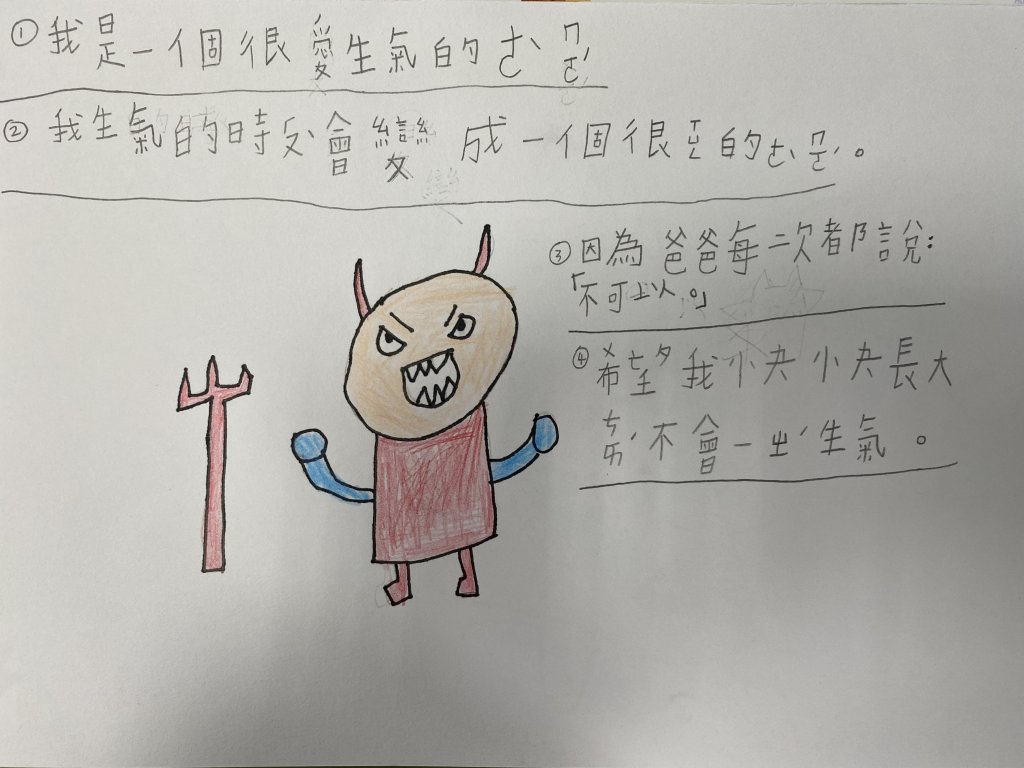 ①我是一個很愛生氣的ㄜˋㄇㄛˊ
②我生氣的時會變成一個很ㄒㄩㄥ的ㄜˋㄇㄛˊ。
③因為爸爸每二次都說:
「不可以。」
④希望我小夬小夬長大
ㄘㄞˊ不會一ㄓˊ生氣。